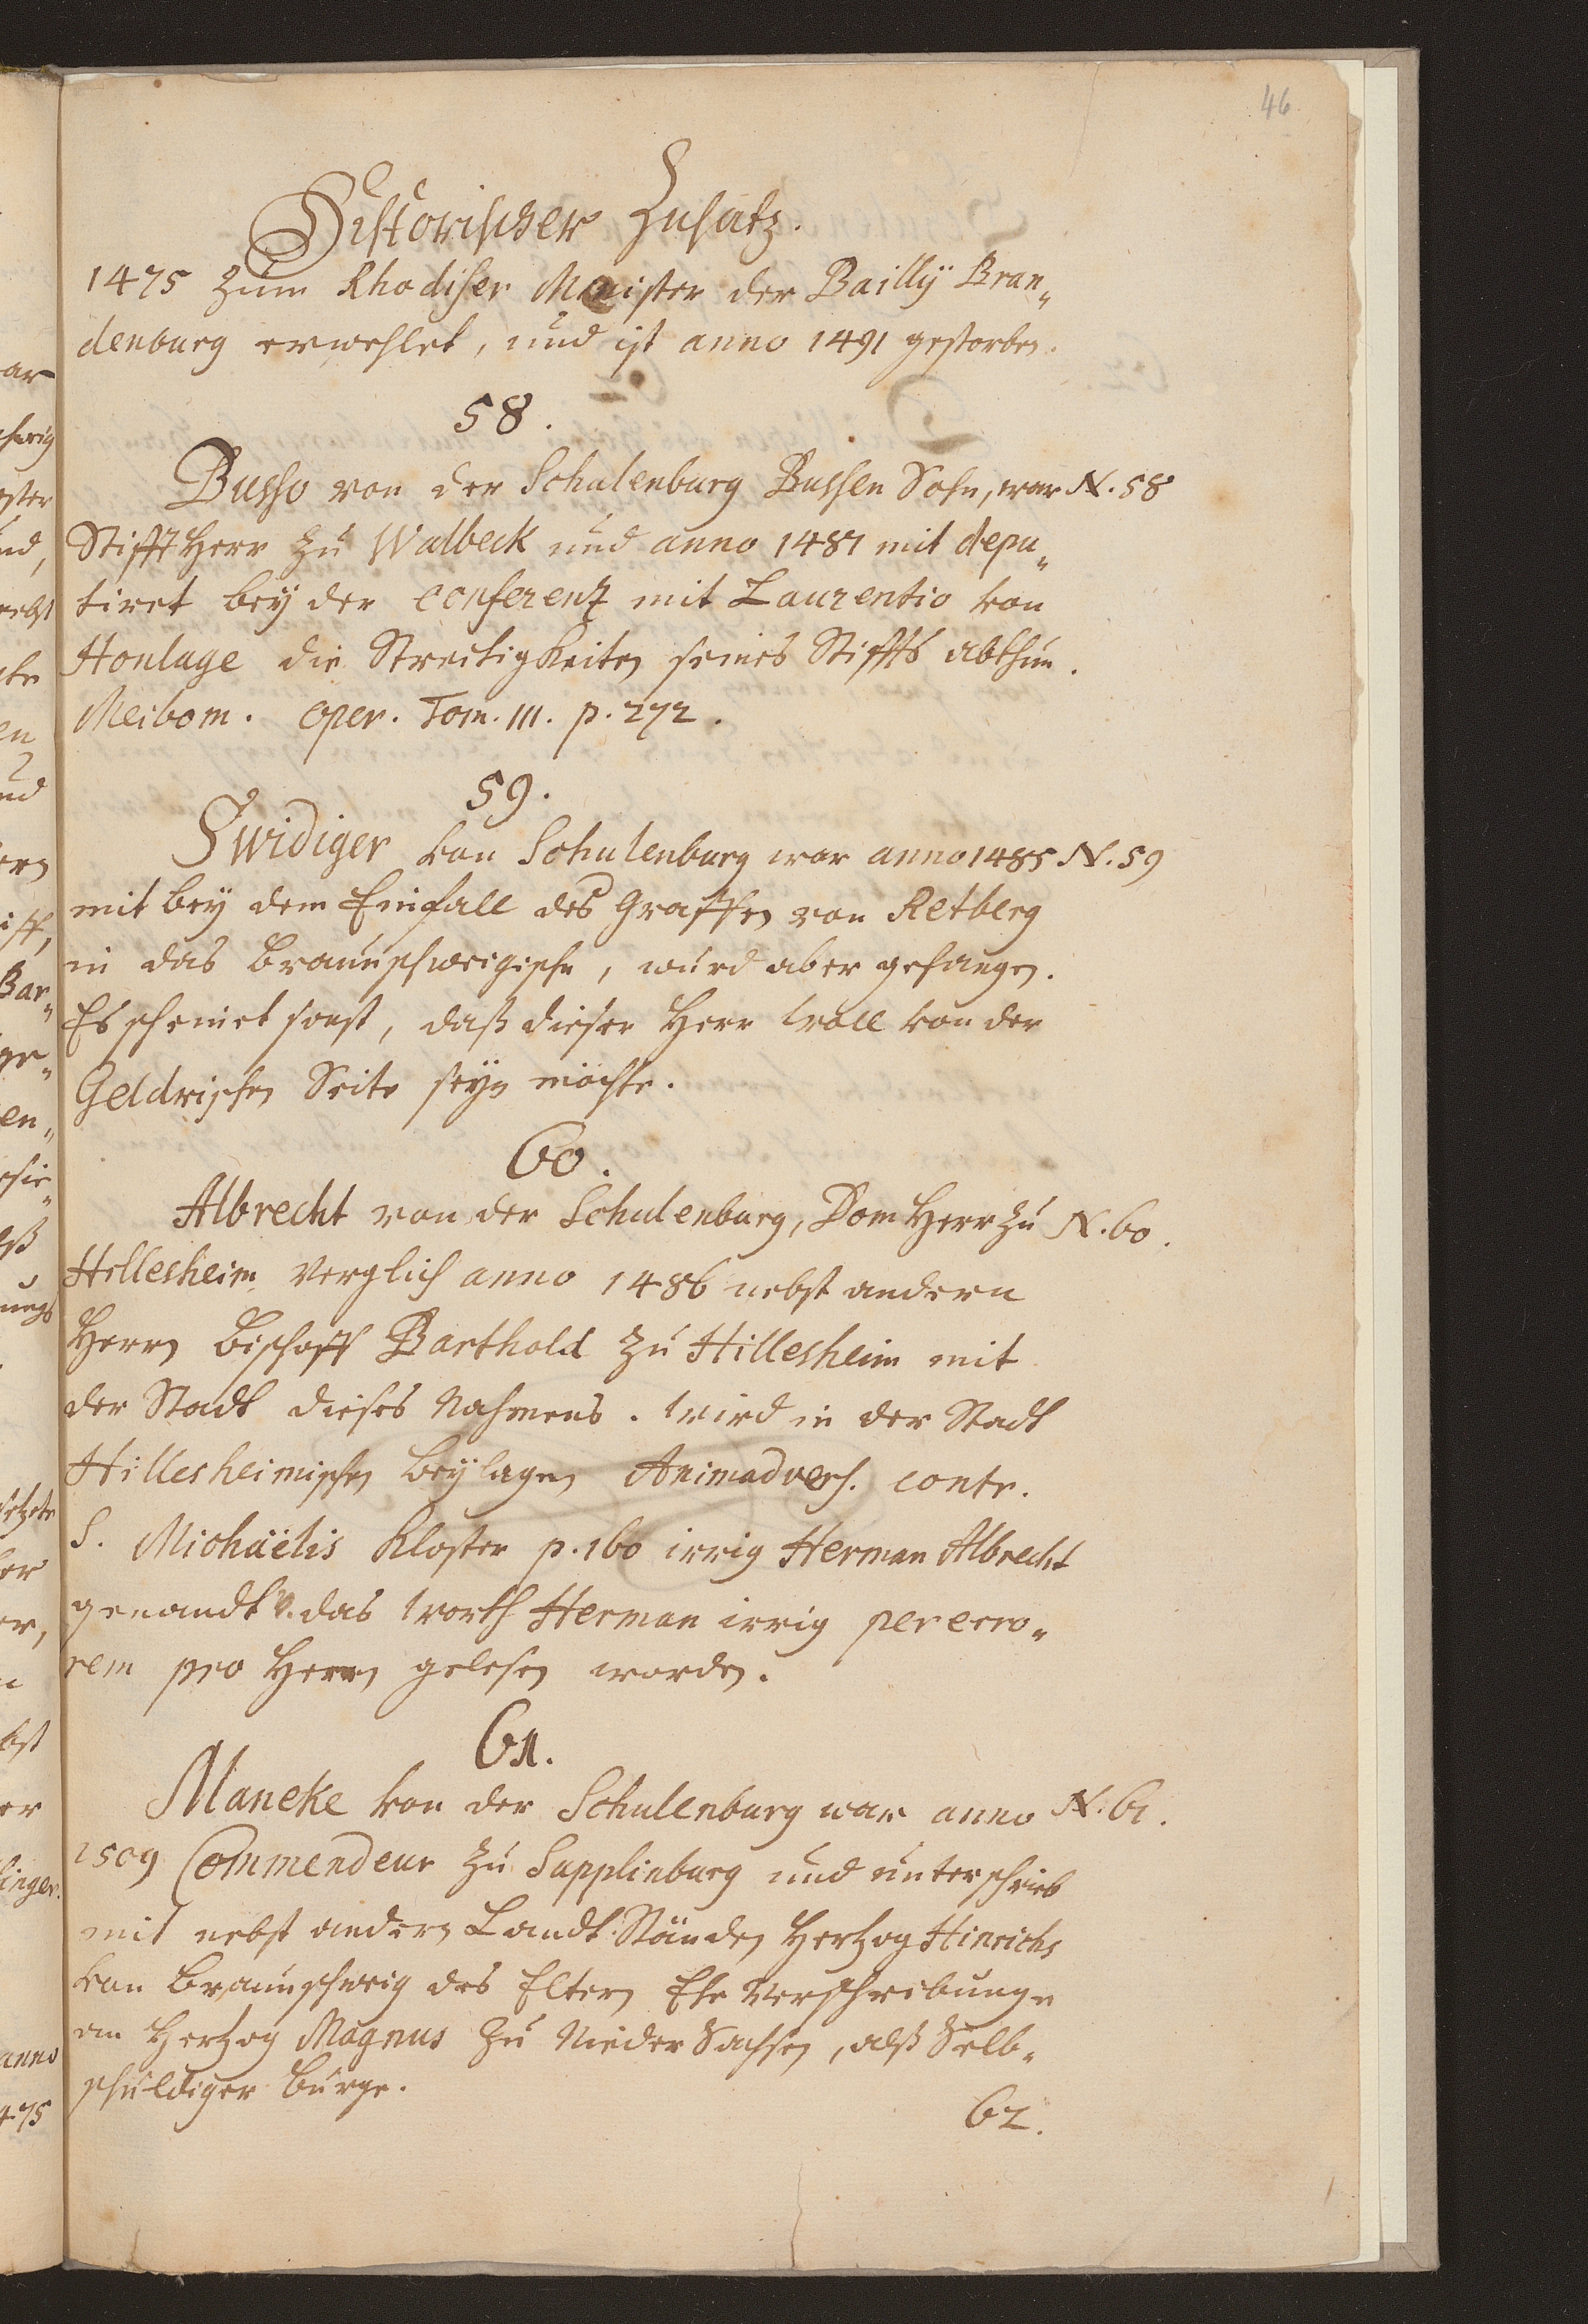 46
Historischer Zusatz.
1475 zum Rhodiser Meister der Bailly Bran„
denburg erwehlet, und ist anno 1491 gestorben.
58.
Busso von der Schulenburg Bussen Sohn, war N. 58
Stifft Herr zu Walbeck und anno 1487 mit depu„
tiret bey der conferentz mit Laurentio von
Honlage die Streitigkeiten seines Stiffts abthun.
Meibom. oper. Tom. III. p. 272.
59.
Swidiger von Schulenburg war anno 1485 N. 59
mit bey dem Einfall des Graffen von Retberg
in das Braunschweigische, wurd aber gefangen.
Es scheinet sonst, daß dieser Herr woll von der
Geldrischen Seite seyn möchte.
60.
Albrecht von der Schulenburg, Dom Herr zu N. 60.
Hillesheim verglich anno 1486 nebst andern
Herrn Bischoff Barthold zu Hillesheim mit
der Stadt dieses Nahmens. wird in der Stadt
Hillesheimischen Beylagen Animadvers. contr.
S. Michaëlis Kloster p. 160 irrig Herman Albrecht
genandt v. das worth Herman irrig per erro„
rem pro Herrn gelesen worden.
61.
Maneke von der Schulenburg war anno N. 61.
1509 Commendeur zu Supplinburg und unterschrieb
mit nebst andern Landt Ständen Hertzog Hinrichs
von Braunschweig des Eltern Ehe Verschreibunge
an Hertzog Magnus zu Nieder Sachsen, alß Selb„
schuldiger Bürge.
62.